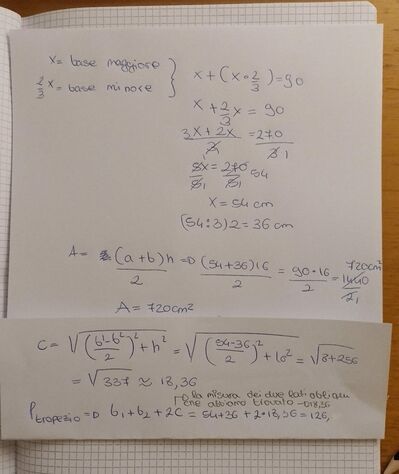 x = base maggiore
2/3 x = base minore
x + (x • 2/3) = 90
x + 2/3 x = 90
3x + 2x / 3 = 270 / 3 1
5x / 5 1 = 270 / 5 1 54
x = 54 cm
(54:3)2 = 36 cm
A = (a + b) h / 2 =D (54+36)16 / 2 = 90 • 16 / 2 = 1440 / 2 1 720cm²
A = 720cm²
C = √((b¹-b²/2)² + h²) = √((54-36/2)² + 16²) = √8+256
= √337 ≈ 18,36
la misura dei due lati obliqui
che abbiamo trovato → 18,36
P trapezio =D b1 + b2 + 2C = 54+36 + 2•18,36 = 126,